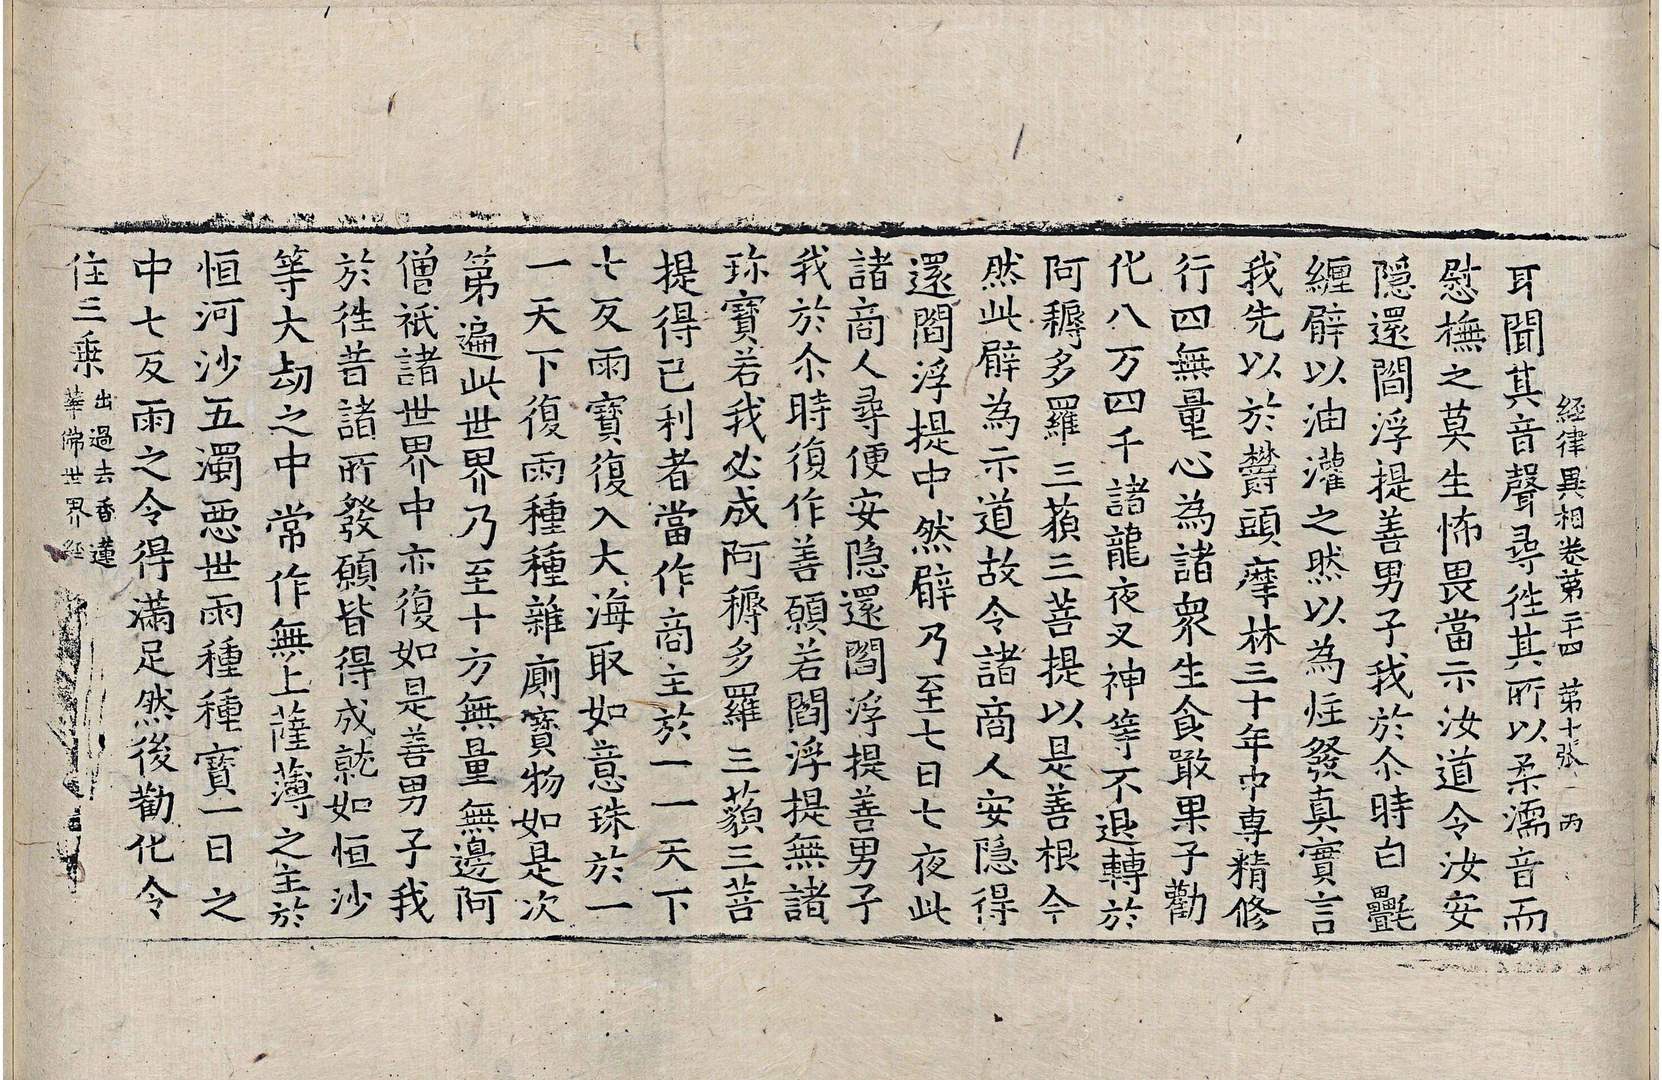 經律異相卷第二十四 第十張 丙
耳聞其音聲尋往其所以柔濡音而
慰撫之莫生怖畏當示汝道令汝安
隱還閻浮提善男子我於尒時白㲲
纏臂以油灌之然以為炷發真實言
我先以於欝頭摩林三十年中專精修
行四無量心為諸衆生食噉果子勸
化八万四千諸龍夜叉神等不退轉於
阿耨多羅三藐三菩提以是善根今
然此臂為示道故令諸商人安隱得
還閻浮提中然臂乃至七日七夜此
諸商人尋便安隱還閻浮提善男子
我於尒時復作善願若閻浮提無諸
珎寶若我必成阿耨多羅三藐三菩
提得己利者當作商主於一一天下
七反雨寶復入大海取如意珠於一
一天下復雨種種雜廁寶物如是次
第遍此世界乃至十方無量無邊阿
僧祇諸世界中亦復如是善男子我
於往昔諸所發願皆得成就如恒沙
等大劫之中常作無上薩薄之主於
恒河沙五濁惡世雨種種寶一日之
中七反雨之令得滿足然後勸化令
住三乘出過去香蓮
華佛世界經